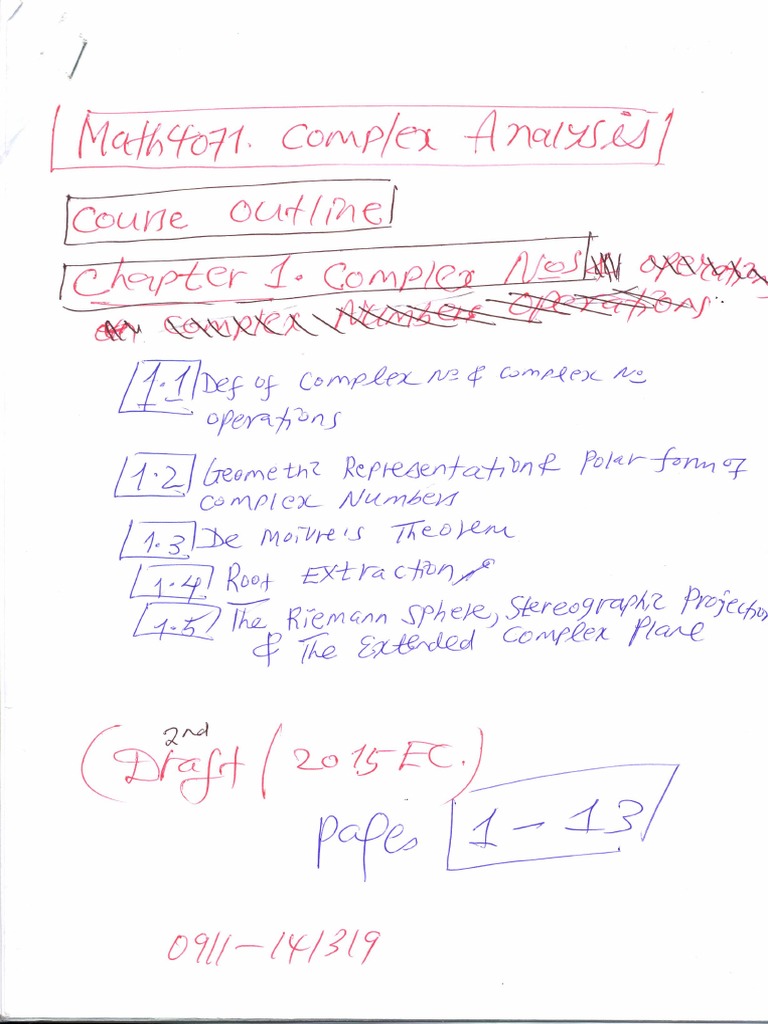 Math4071. Complex Analysis
Course Outline
Chapter 1. Complex Nos operations
complex Numbers Operations.
1.1 Def of complex No & complex No
operations
1.2 Geometric Representation & Polar form of
complex Numbers
1.3 De Moivre's Theorem
1.4 Root Extraction
1.5 The Riemann Sphere, Stereographic Projection
& The Extended Complex Plane
2nd
(Draft (2015 EC.)
pages 1 - 13
0911-141319